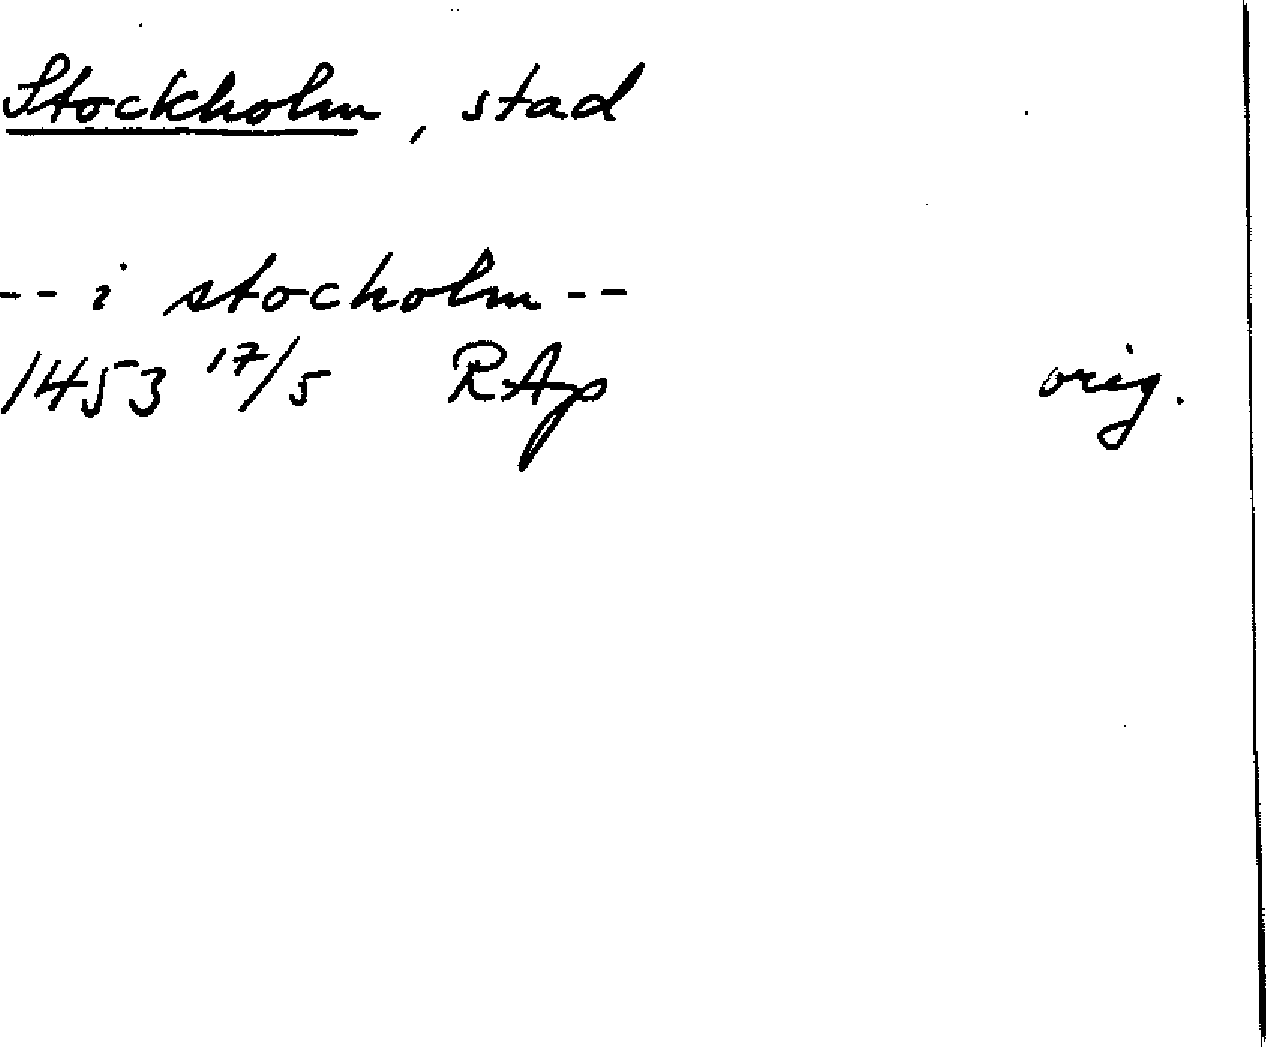 Stockholm, stad
-- i stocholm --
1453 17/5 RAp orig.